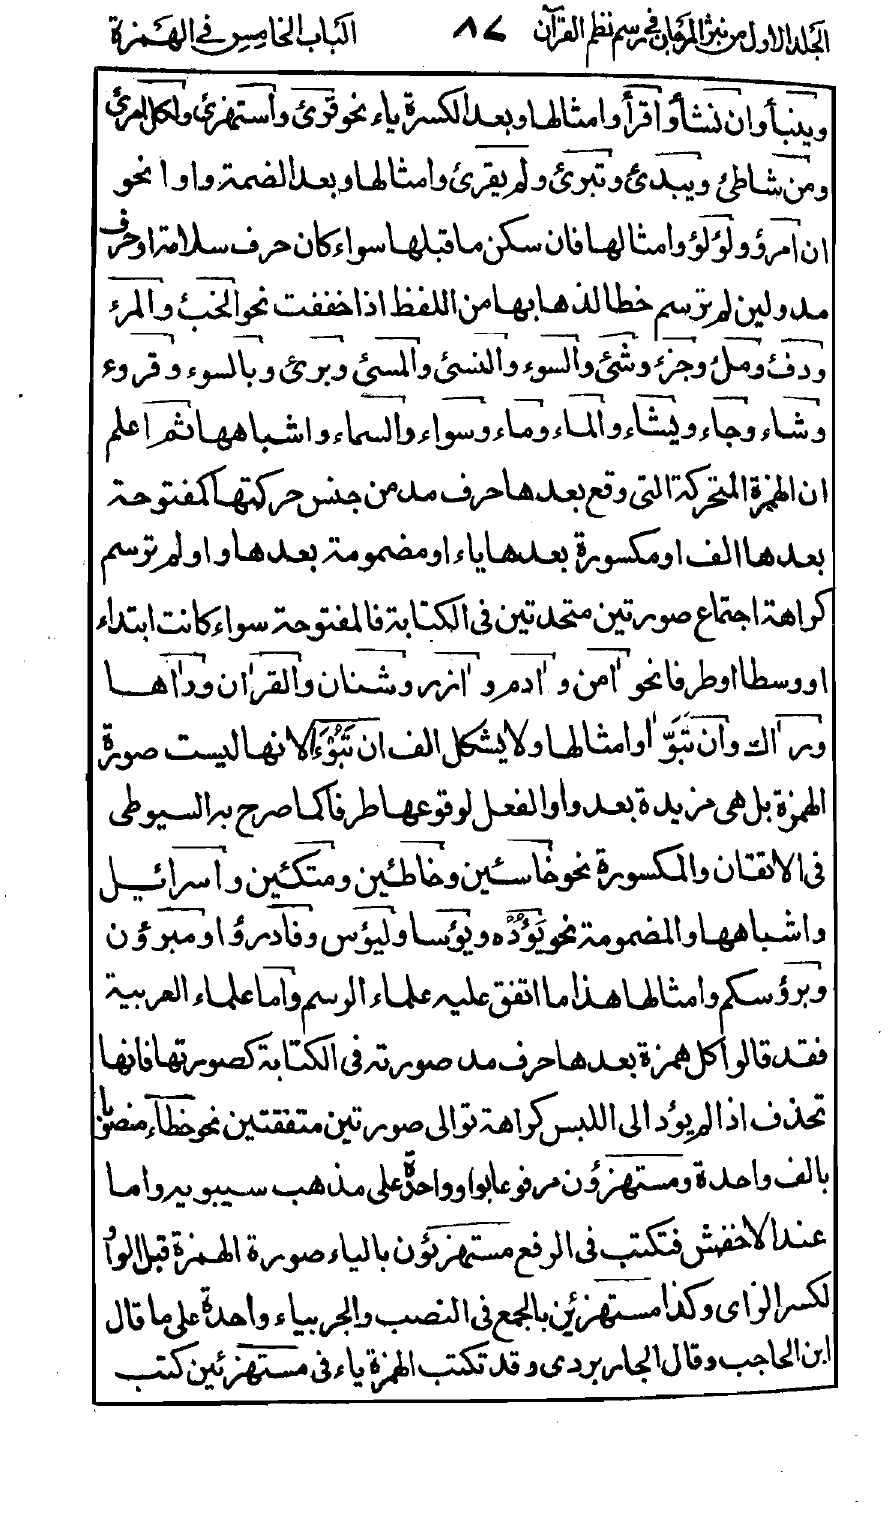 الجلد الاول من نثر المرجان في رسم نظم القرآن ٨٧ الباب الخامس في الهمزة
وينبأ وان نشأ واقرأ وامثالها وبعد الكسرة ياء نحو قرئ واستهزئ ولكل امرئ
ومن شاطئ ويبدئ وتبرئ ولم يقرئ وامثالها وبعد الضمة واوا نحو
ان امرؤ ولؤلؤ وامثالها فان سكن ما قبلها سواء كان حرف سلامة او حرف
مد ولين لم ترسم خطا لذهابها من اللفظ اذا خففت نحو الخبء والمرء
ودفء وملء وجزء وشئ والسوء والنسئ والمسئ وبرئ وبالسوء وقروء
وشاء وجاء ويشاء والماء وماء وسواء والسماء واشباهها ثم اعلم
ان الهمزة المتحركة التى وقع بعدها حرف مد من جنس حركتها كمفتوحة
بعدها الف او مكسورة بعدها ياء او مضمومة بعدها واو لم ترسم
كراهة اجتماع صورتين متحدتين فى الكتابة فالمفتوحة سواء كانت ابتداء
او وسطا او طرفا نحو اٰمن و اٰدم و اٰزر وشنان والقراٰن ورداٰها
وراٰك وان تبوّاٰ وامثالها ولا يشكل الف ان تَبُوْءَا لانها ليست صورة
الهمزة بل هى مزيدة بعد واو الفعل لوقوعها طرفا كما صرح به السيوطى
فى الاتقان والمكسورة نحو خاسئين وخاطئين ومتكئين واسرائيل
واشباهها والمضمومة نحو يَؤُدُه ويؤسا وليؤس وفادرؤا ومبرؤن
وبرؤسكم وامثالها هذا ما اتفق عليه علماء الرسم واما علماء العربية
فقد قالوا كل همزة بعدها حرف مد صورته فى الكتابة كصورتها فانها
تحذف اذا لم يؤد الى اللبس كراهة توالى صورتين متفقتين نحو خطاء منصوبا
بالف واحدة ومستهزؤن مرفوعا بواو واحدة على مذهب سيبويه واما
عند الاخفش فتكتب فى الرفع مستهزئون بالياء صورة الهمزة قبل الواو
لكسر الزاى وكذا مستهزئين بالجمع فى النصب والجر بياء واحدة على ما قال
ابن الحاجب وقال الجاربردى وقد تكتب الهمزة ياء فى مستهزئين كتب